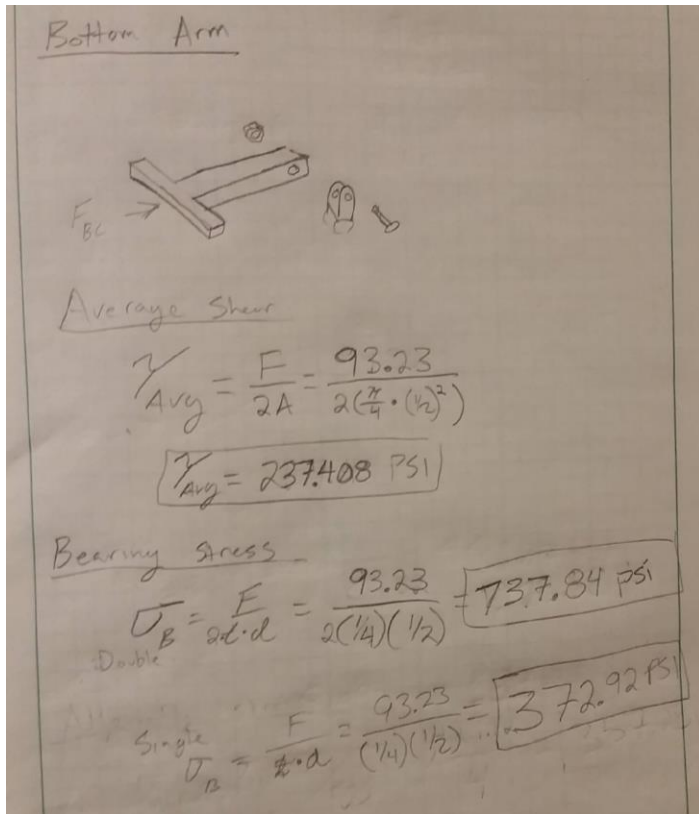 Bottom Arm
F_BC →
Average Shear
τ_Avg = F/2A = 93.23/2(π/4 · (1/2)²)
τ_Avg = 237.408 PSI
Bearing Stress
σ_B = F/2t·d = 93.23/2(1/4)(1/2) = 737.84 psi
Double
Single σ_B = F/t·d = 93.23/(1/4)(1/2) = 372.92 PSI